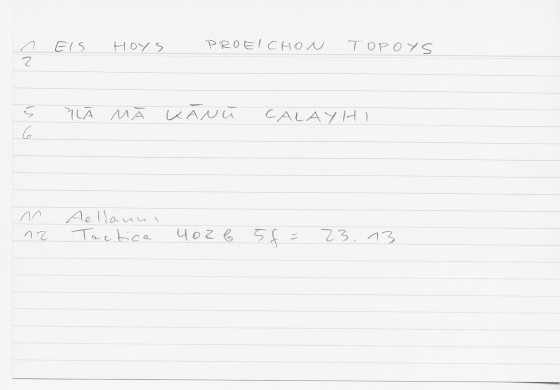 1 EIS HOYS PROEICHON TOPOYS
2
5 'ILĀ MĀ KĀNŪ CALAYHI
6
11 Aelianus
12 Tactica 402 b 5f = 23.13